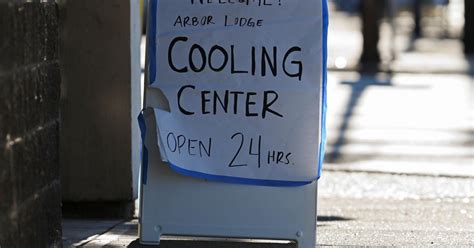 WELCOME!
ARBOR LODGE
COOLING
CENTER
OPEN 24 HRS.